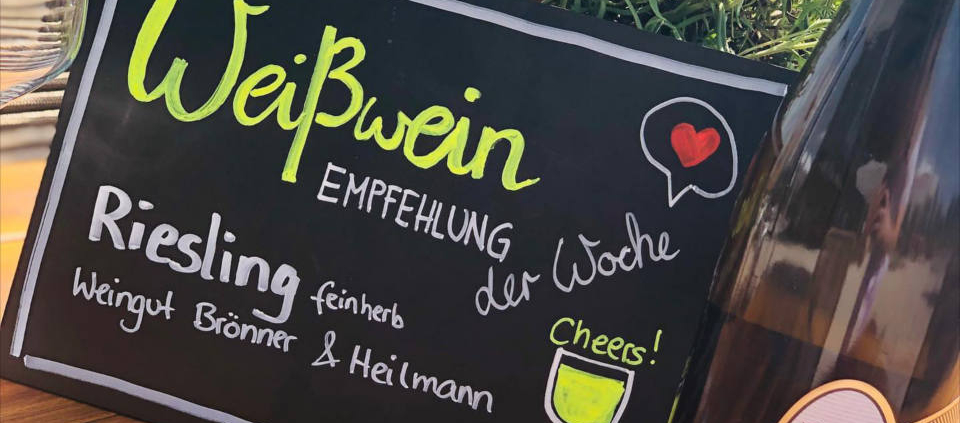 Weißwein
EMPFEHLUNG
der Woche
Riesling feinherb
Weingut Brönner & Heilmann
Cheers!